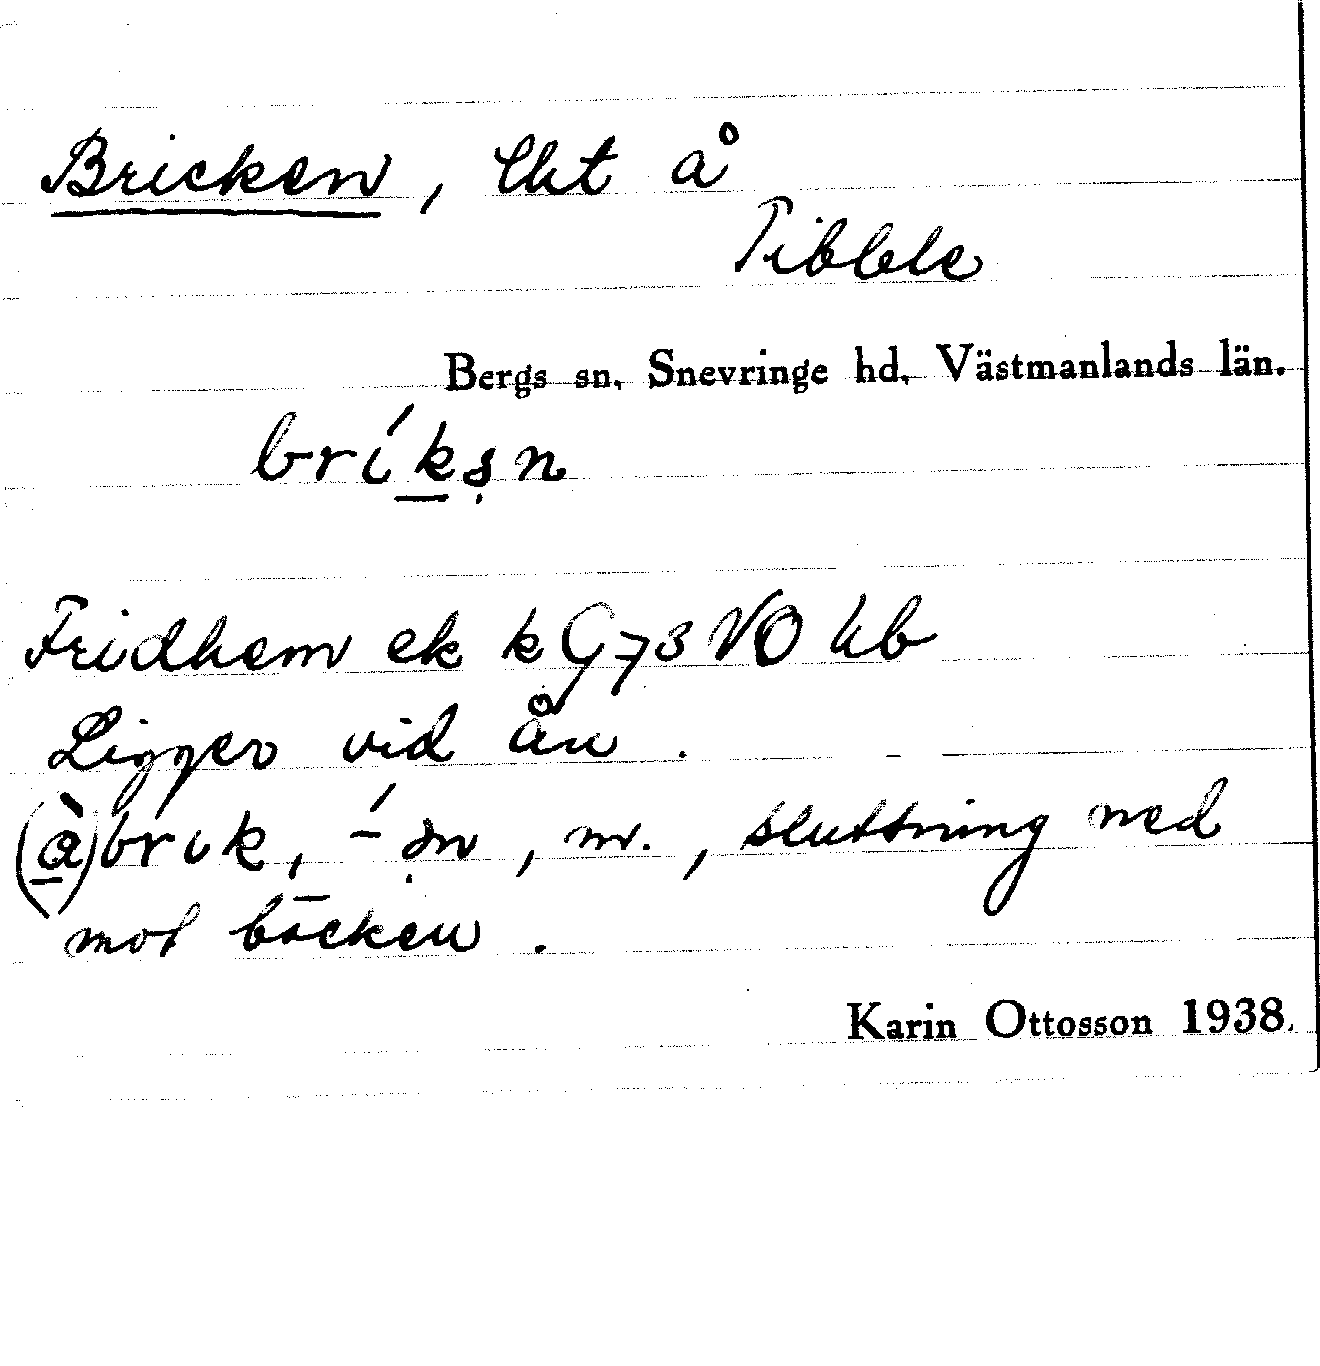 Bricken, lht å
Tibble
Bergs sn, Snevringe hd, Västmanlands län.
Fridhem ek k G73 VO hb
Ligger vid ån.
m., sluttning ned
mot bäcken.
Karin Ottosson 1938.